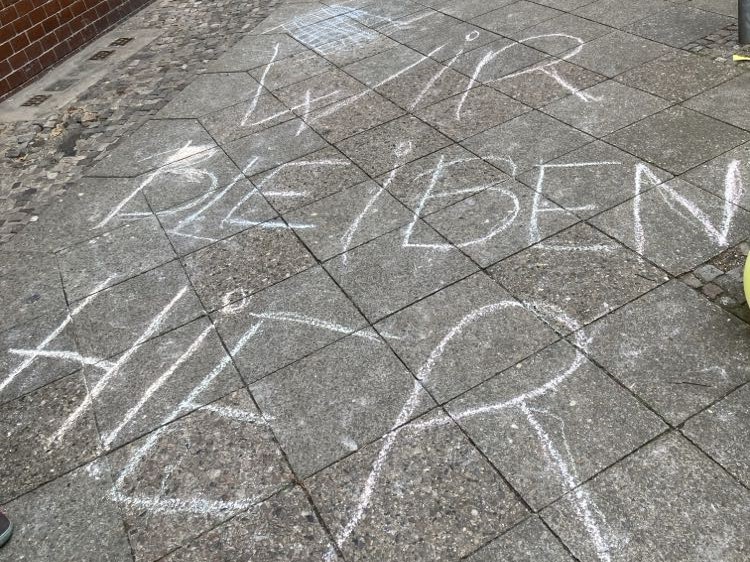 WiR
BLEiBEN
HiER